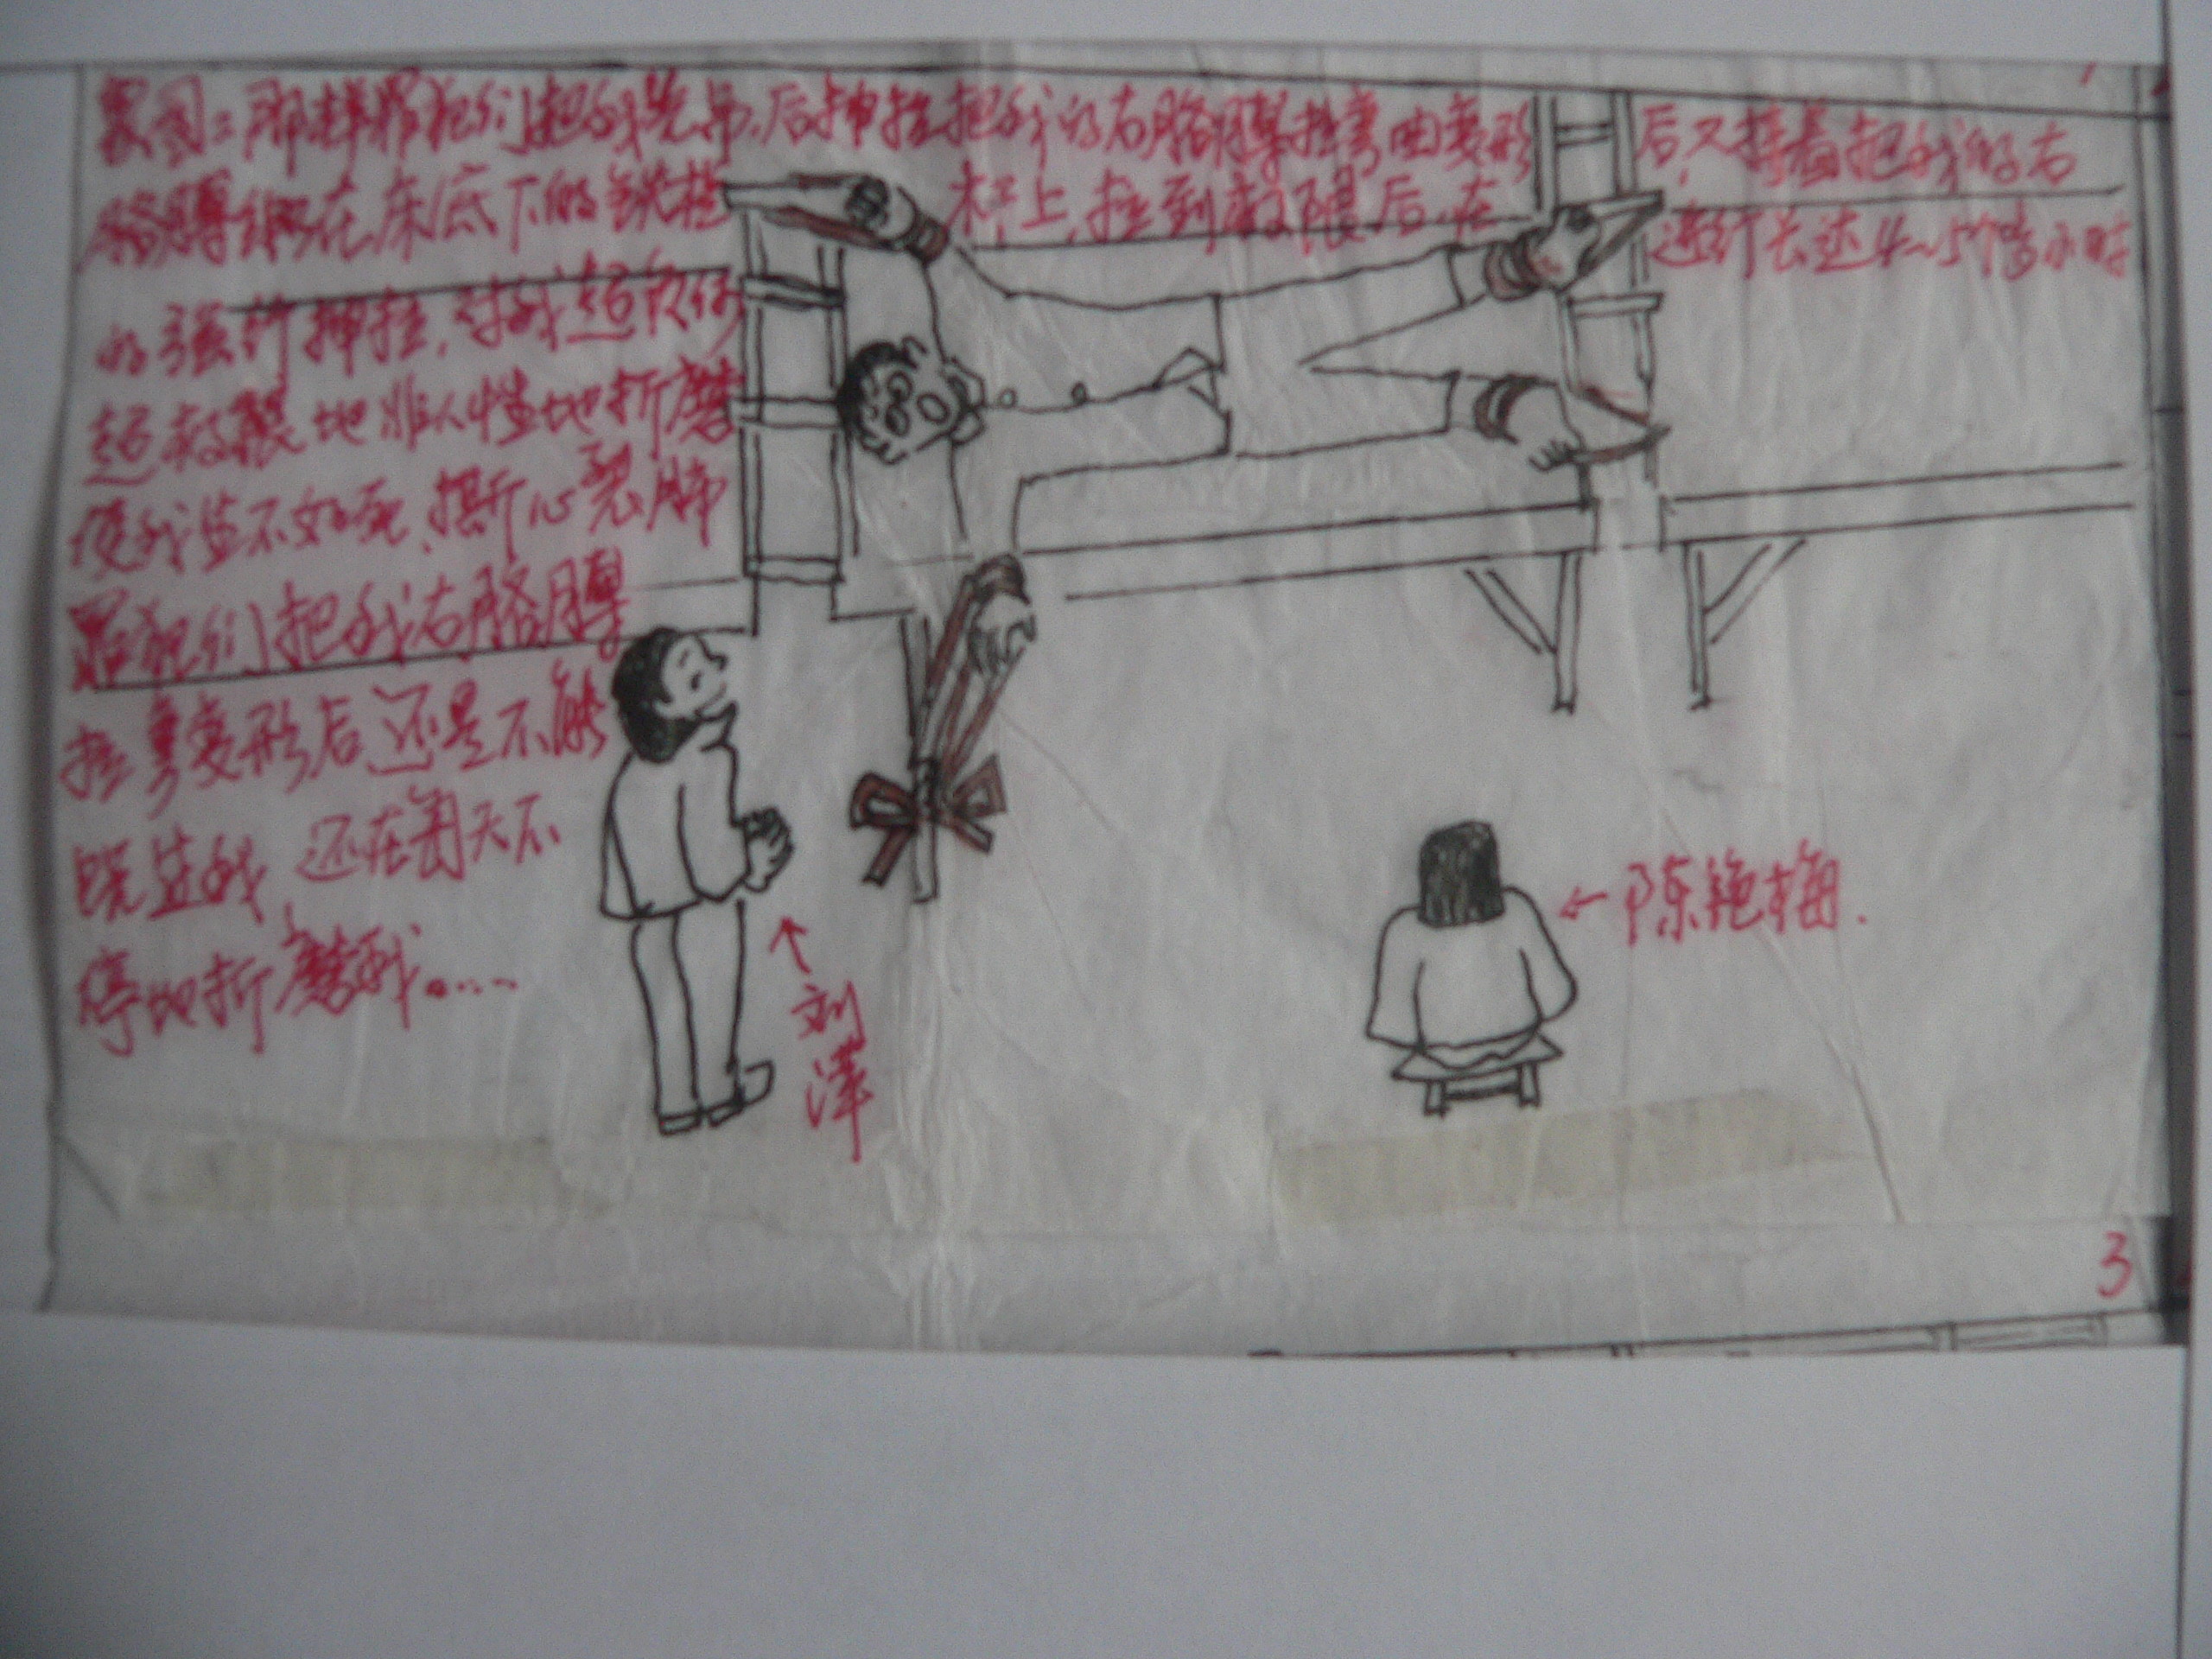 罪犯们把我先吊后抻拉把我的右胳膊拉弯曲变形后,又接着把我的右
胳膊绑在床底下的铁栏杆上,拉到极限后,在进行长达4~5个多小时
的强行抻拉,对我超负荷
超极限地非人性地折磨
使我生不如死、撕心裂肺
罪犯们把我右胳膊
拉弯变形后还是不能
既 我 还在每天不
停地折磨我.....
刘洋
陈艳梅.
3